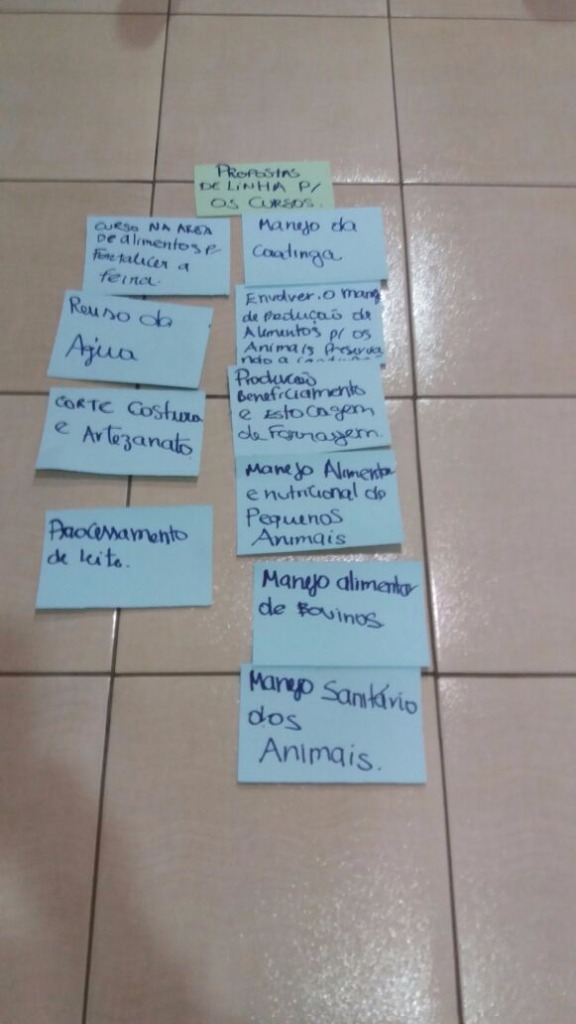 PROPOSTAS
DE LINHA P/
OS CURSOS.
CURSO NA AREA
De alimentos p/
Fortalecer a
feira.
Reuso da
Agua
CORTE Costura
e Artezanato
Processamento
de leite.
Manejo da
Caatinga
Envolver. o
de produção de
Alimentos p/ os
Animais Preserva
ndo a
Produção
Beneficiamento
e Estocagem
de Forragem.
Manejo Alimentar
e nutricional de
Pequenos
Animais
Manejo alimentar
de Bovinos
Manejo Sanitário
dos
Animais.